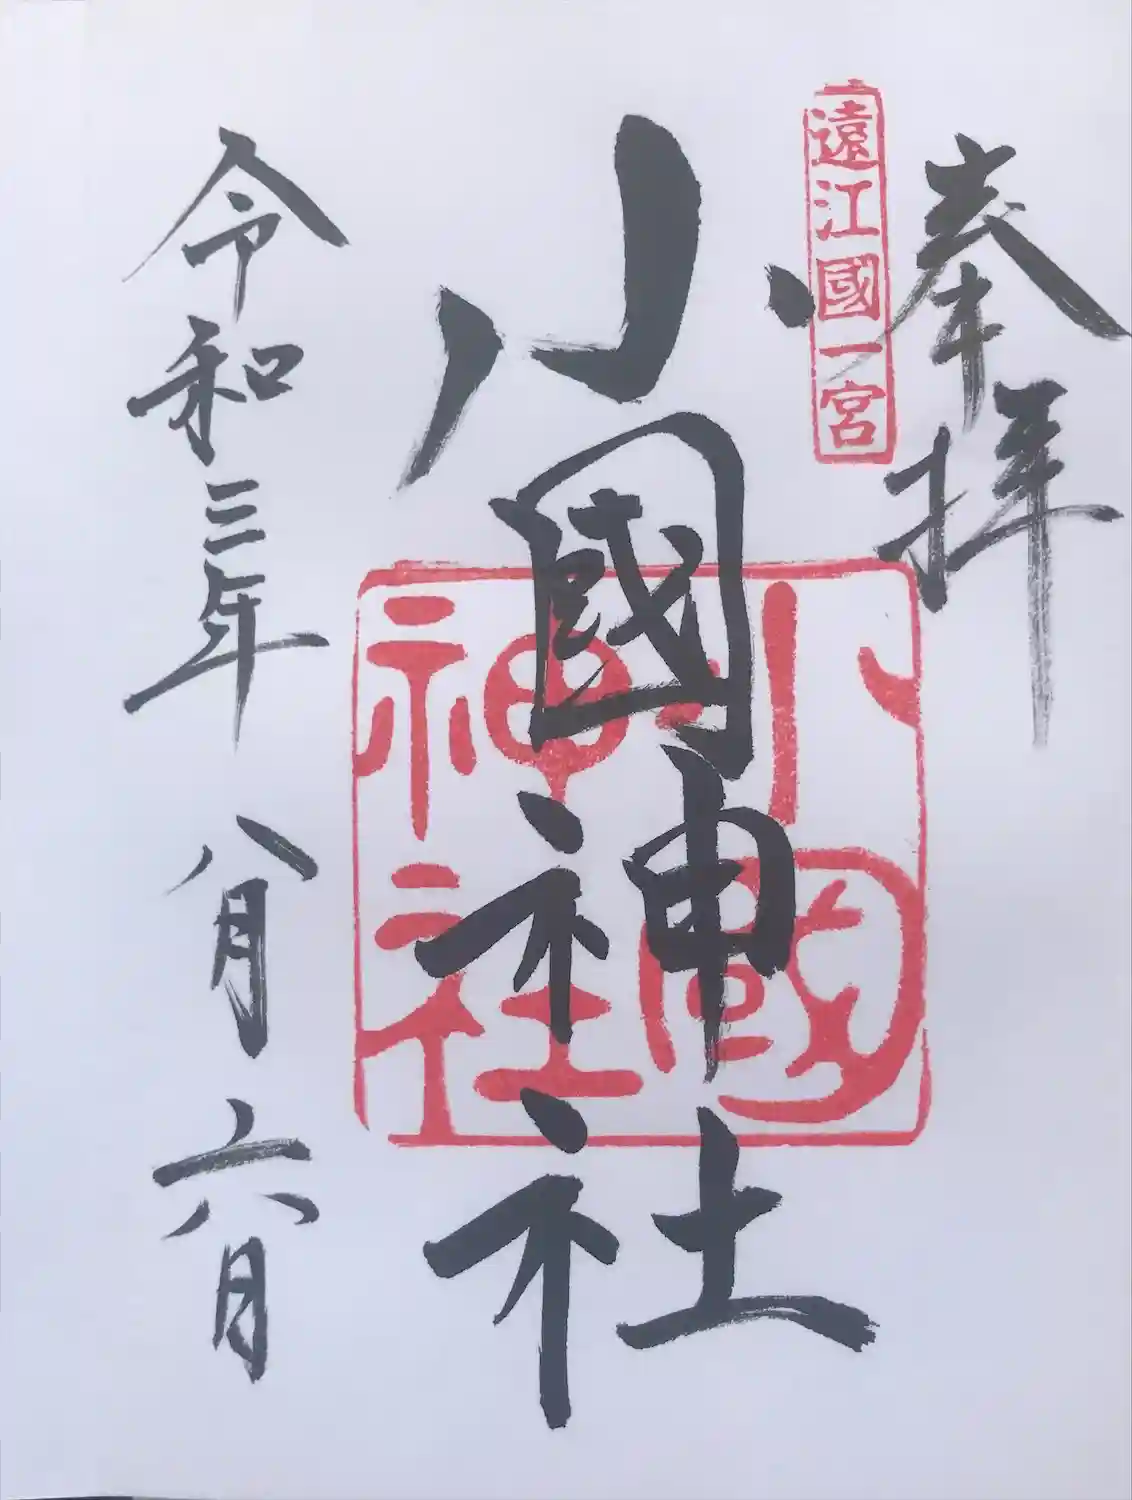 奉拝
遠江國一宮
小國神社
小國神社
令和三年八月六日